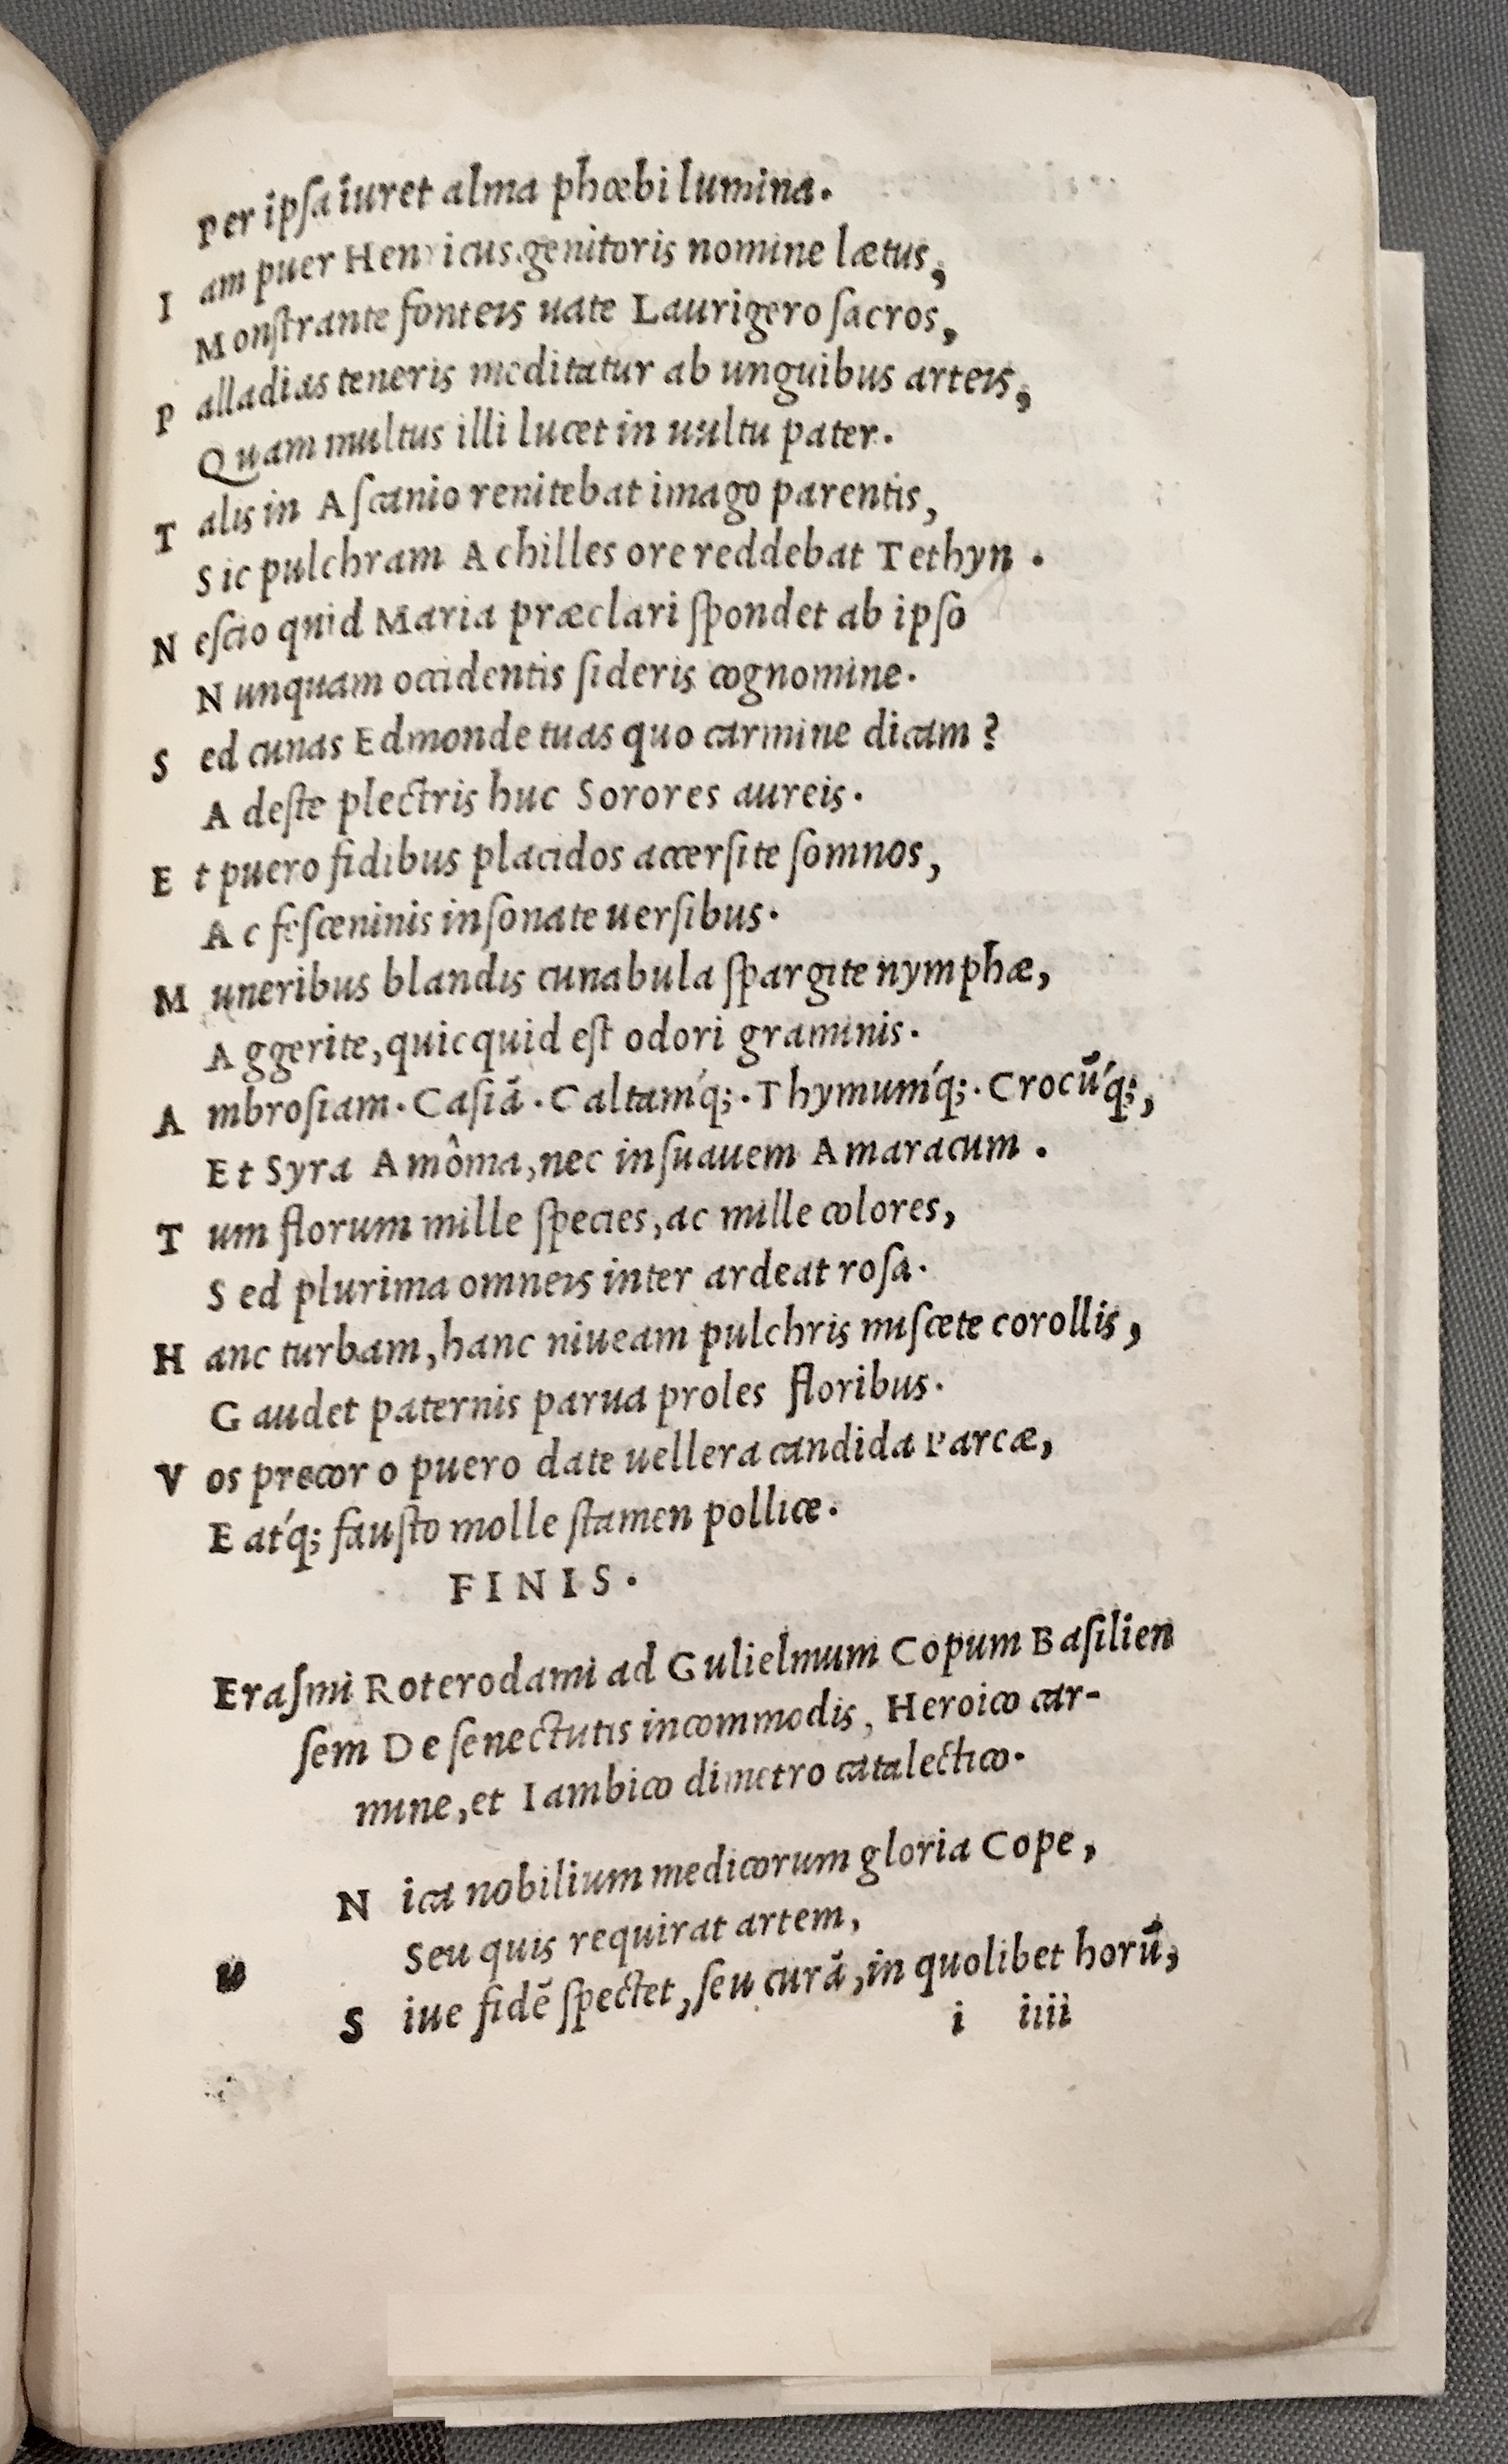 Per ipſa iuret alma phœbi lumina.
I am puer Henricus genitoris nomine lætus,
Monſtrante fonteis uate Laurigero ſacros,
P alladias teneris meditatur ab unguibus arteis,
Quam multus illi lucet in uultu pater.
T alis in Aſcanio renitebat imago parentis,
Sic pulchram Achilles ore reddebat Tethyn.
N eſcio quid Maria præclari ſpondet ab ipſo
Nunquam occidentis ſideris cognomine.
S ed cunas Edmonde tuas quo carmine dicam?
Adeſte plectris huc Sorores aureis.
E t puero fidibus placidos accerſite ſomnos,
Ac feſceninis inſonate uerſibus.
M uneribus blandis cunabula ſpargite nymphæ,
Aggerite, quicquid eſt odori graminis.
A mbroſiam. Caſiā. Caltamq́;. Thymumq́;. Crocūq́;,
Et Syra Amôma, nec inſuauem Amaracum.
T um florum mille ſpecies, ac mille colores,
Sed plurima omneis inter ardeat roſa.
H anc turbam, hanc niueam pulchris miſcete corollis,
Gaudet paternis parua proles floribus.
V os precor o puero date uellera candida Parcæ,
Eatq́; fauſto molle ſtamen pollice.
FINIS.
Eraſmi Roterodami ad Gulielmum Copum Baſilien
ſem De ſenectutis incommodis, Heroico car-
mine, et Iambico dimetro catalectico.
N ica nobilium medicorum gloria Cope,
Seu quis requirat artem,
u
S iue fidē ſpectet, ſeu curā, in quolibet horū,
i iiii